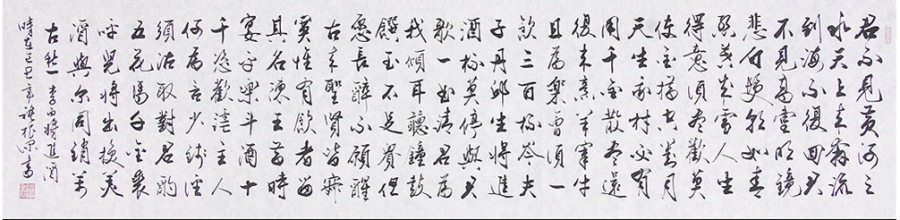 君不見黃河之
水天上来奔流
到海不復回君
不見高堂明鏡
悲白髮朝如青
絲暮成雪人生
得意須盡歡莫
使金樽空對月
天生我材必有
用千金散盡還
復来烹羊宰牛
且為樂會須一
飲三百杯岑夫
子丹邱生將進
酒杯莫停與君
歌一曲請君為
我傾耳聽鐘鼓
饌玉不足貴但
願長醉不願醒
古来聖賢皆寂
寞惟有飲者留
其名陳王昔時
宴平樂斗酒十
千恣歡謔主人
何為言少錢徑
須沽取對君酌
五花馬千金裘
呼兒將出換美
酒與尔同銷萬
古愁 李白將進酒
時在己丑年書